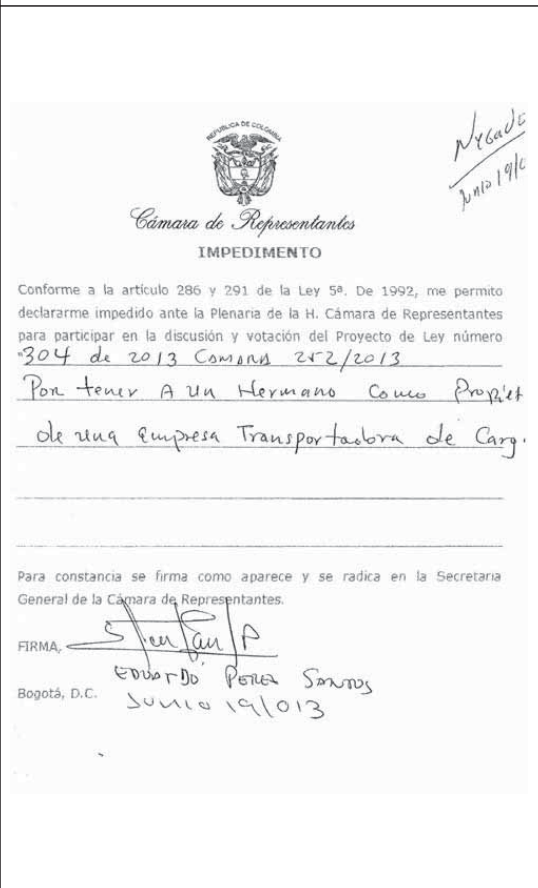 Negado
Junio 19/
REPUBLICA DE COLOMBIA
Cámara de Representantes
IMPEDIMENTO
Conforme a la artículo 286 y 291 de la Ley 5ª. De 1992, me permito
declararme impedido ante la Plenaria de la H. Cámara de Representantes
para participar en la discusión y votación del Proyecto de Ley número
"304 de 2013 Camara 252/2013
Por tener A un Hermano Como Propiet
de una Empresa Transportadora de Carg.
Para constancia se firma como aparece y se radica en la Secretaria
General de la Cámara de Representantes.
FIRMA,
EDUARDO PEREZ SANTOS
Bogotá, D.C.
JUNIO 19/013